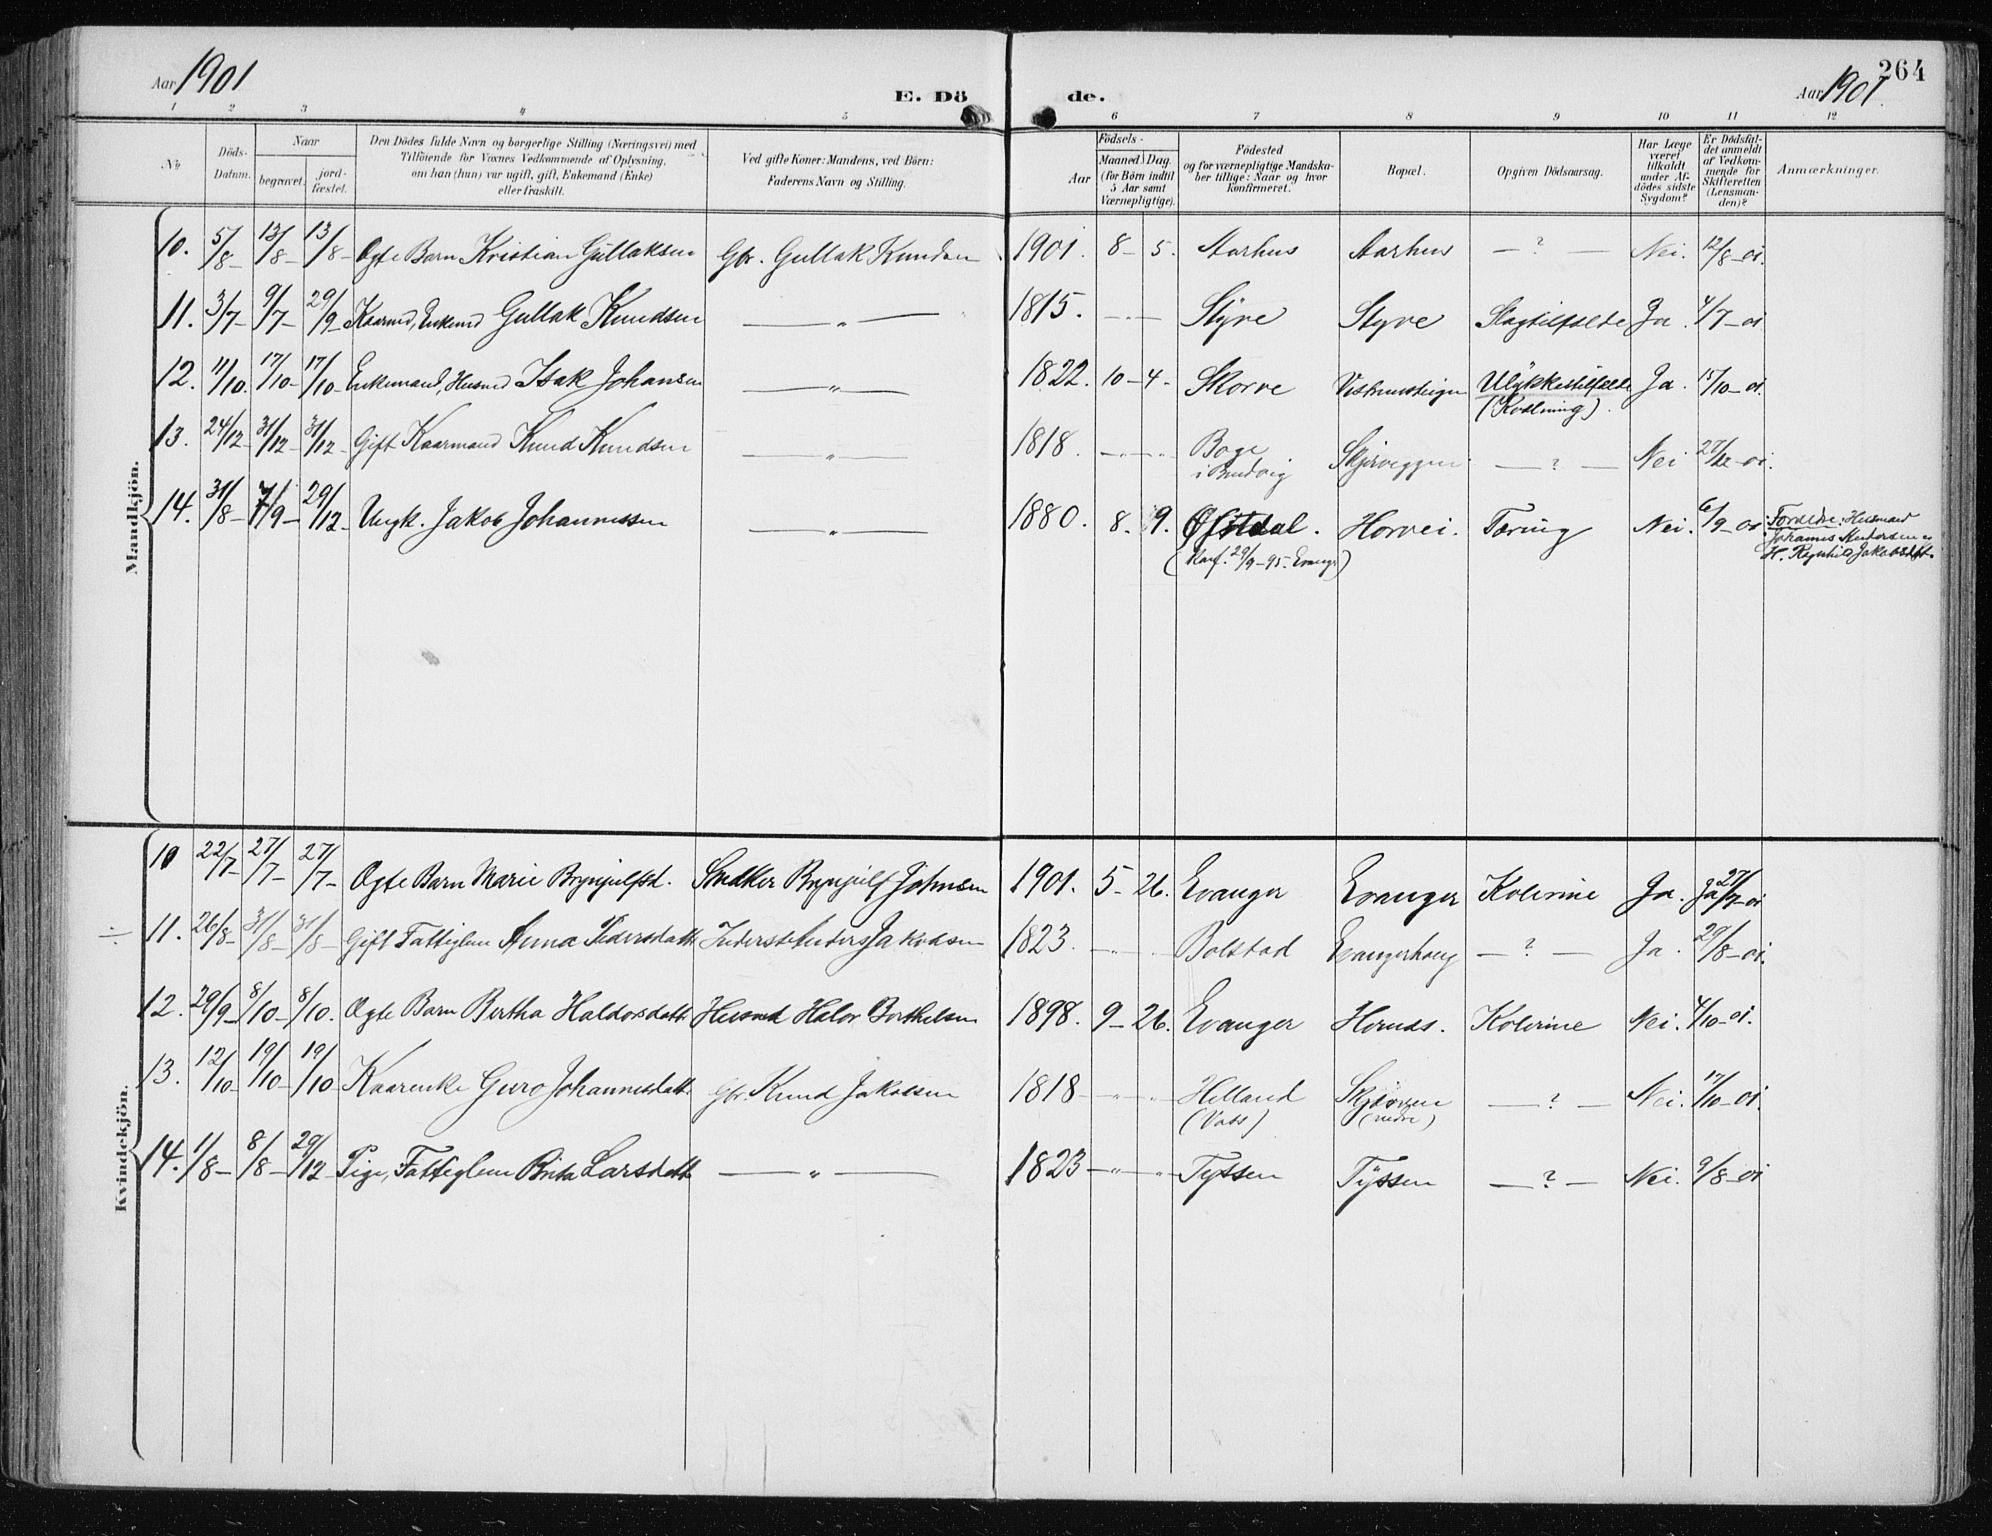 264
Aar 1901
E. Dö de.
Aar 1901.
1 2 3 4 5 6 7 8 9 10 11 12
No
Döds-
Datum.
Naar
begravet.
jord-
fæstet.
Den Dödes fulde Navn og borgerlige Stilling (Næringsvei) med
Tilföiende for Voxnes Vedkommende af Oplysning,
om han (hun) var ugift, gift, Enkemand (Enke)
eller fraskilt.
Ved gifte Koner: Mandens, ved Börn:
Faderens Navn og Stilling.
Födsels-
Aar
Maaned Dag.
(for Börn indtil
5 Aar samt
Værnepligtige).
Födested
og for værnepligtige Mandska-
ber tillige: Naar og hvor
konfirmeret.
Bopæl.
Opgiven Dödsaarsag.
Har Læge
været
tilkaldt
under Af-
dödes sidste
Sygdom?
Er Dödsfal-
det anmeldt
af Vedkom-
mende for
Skifteretten
(Lensman-
den)?
Anmærkninger.
Mandkjön.
10. 5/8- 13/8- 13/8- Ægte Barn Kristian Gullaksen Gbr. Gullak Knudsen 1901. 8- 5. Aarhus Aarhus — ? — Nei. 12/8-01.
11. 3/7- 9/7- 29/9- Kaarmd, Enkemd Gullak Knudsen — " — 1815. — " — " — Styve Styve Slagtilfælde Ja. 4/7-01
12. 11/10. 17/10- 17/10- Enkemand, Husmd Isak Johansen — " — 1822. 10- 4- Skorve Ulykkestilfælde Ja. 15/10-01.
(Kvælning).
13. 24/12- 31/12- 31/12- Gift Kaarmand Knud Knudsen — " — 1818. — " — " — Boge Skjerveggen — ? — Nei 27/12-01.
i Brudvig
14. 31/8- 7/9- 29/12- Ungk. Jakob Johannessen — " — 1880. 8. 9. Øfstdal. Horvei. Tæring Nei. 6/9-01. Forældre: Husmand
(Konf. 29/9-95. Evangr) Johannes Andersen og
H. Jakobsdtr.
Kvindekjön.
10 22/7- 27/7- 27/7- Ægte Barn Marie Brynjulfsd. Snedker Brynjulf Johnsen 1901. 5- 26. Evanger Evanger Kolerine Ja. Ja 27/7-01
÷ 11. 26/8- 31/8- 31/8- Gift Fattiglem Anna Pedersdatt. Inderste Anders Jakobsen 1823. — " — " — Bolstad Evangerhaug — ? — Ja. 29/8-01.
12. 29/9- 8/10- 8/10. Ægte Barn Bertha Haldorsdatt. Husmd Halor Borthelsen 1898. 9- 26. Evanger Hernds. Kolerine Nei. 4/10-01.
13. 12/10- 19/10- 19/10 Kaarenke Guro Johannesdatt. Gbr. Knud Jakobsen 1818 — " — " — Helland Skjerven — ? — Nei. 17/10-01.
(Vaks) (nedre)
14. 1/8- 8/8- 29/12- Pige, Fattiglem Brita Larsdatt — " — 1823 — " — " — Tyssen Tyssen — ? — Nei. 9/8-01